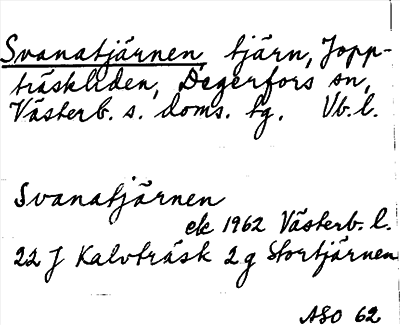 Svanatjärnen, tjärn, Jopp-
träskliden, Degerfors sn,
Västerb. s. doms. tg. Vb. l.
Svanatjärnen
ek 1962 Västerb. l.
22 J Kalvträsk 2 g Stortjärnen
ASO 62